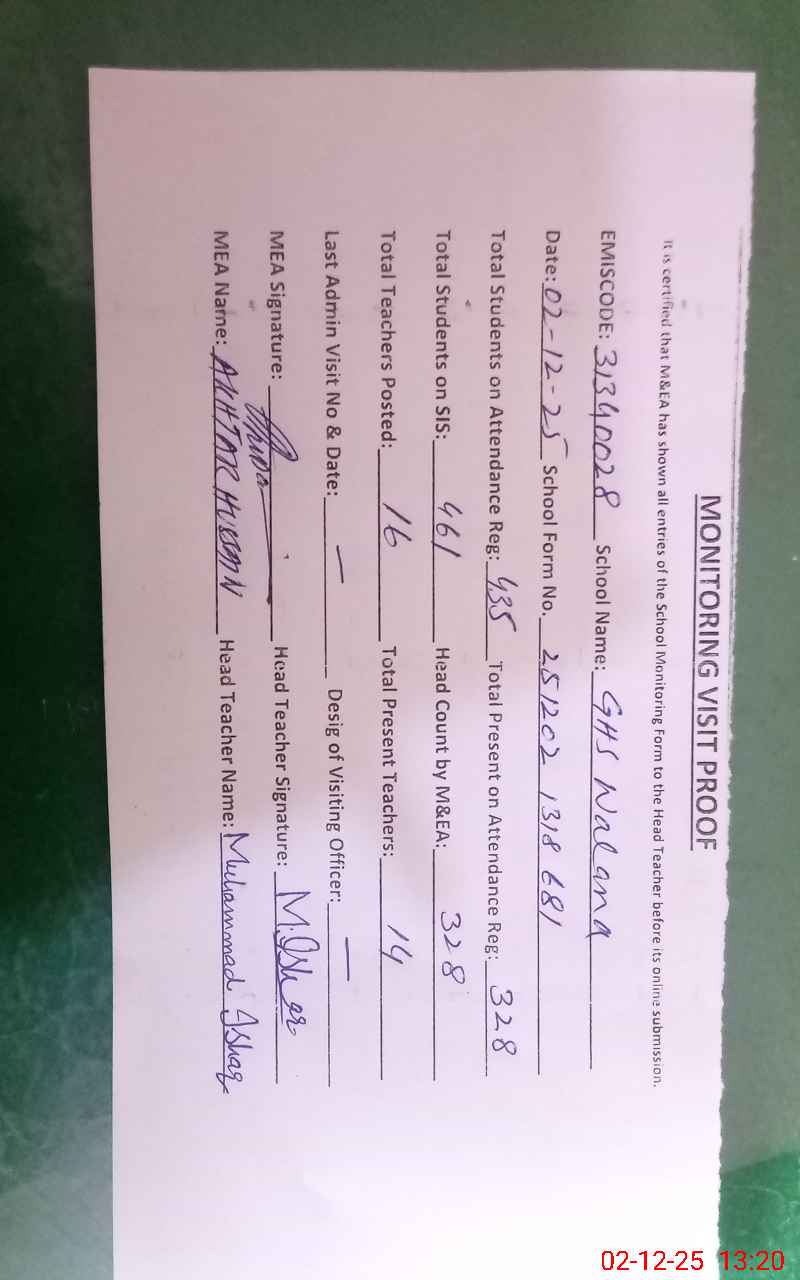 MONITORING VISIT PROOF
It is certified that M&EA has shown all entries of the School Monitoring Form to the Head Teacher before its online submission.
EMISCODE: 31340028 School Name: GHS Walana
Date: 02-12-25 School Form No. 251202 1318 681
Total Students on Attendance Reg: 435 Total Present on Attendance Reg: 328
Total Students on SIS: 461 Head Count by M&EA: 328
Total Teachers Posted: 16 Total Present Teachers: 14
Last Admin Visit No & Date: — Desig of Visiting Officer: —
MEA Signature: Head Teacher Signature: M. Ishaq
MEA Name: AKHTAR HUSSAIN Head Teacher Name: Muhammad Ishaq
02-12-25 13:20